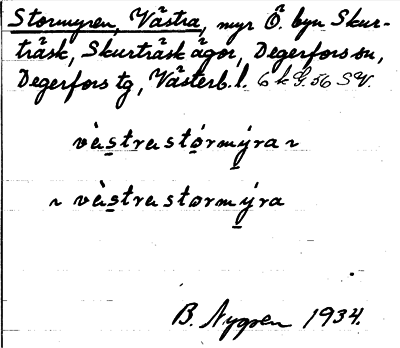 Stormyren, Västra, myr Ö. byn Skur-
träsk, Skurträsk ägor, Degerfors sn,
Degerfors tg, Västerb. l. 6 k G. 56 SV.
và̀stra stórmýra ~
~ và̀stra stormýra
B. Nygren 1934.